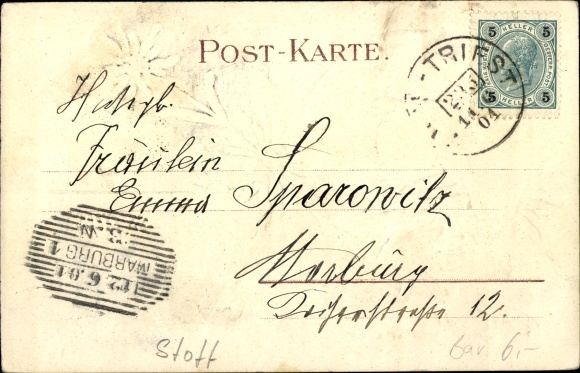 POST-KARTE.
5 HELLER 5
5 HELLER 5
-TRIEST
11 6
01
Fräulein
Emma Sparowitz
Marburg
Kaiserstraße 12.
12.6.01
MARBURG 1
3.N
Stoff
6,-